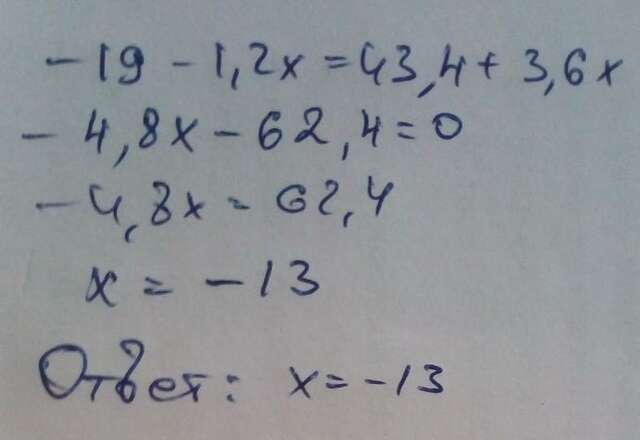 -19 - 1,2x = 43,4 + 3,6x
- 4,8x - 62,4 = 0
- 4,8x = 62,4
x = -13
Ответ: x = -13